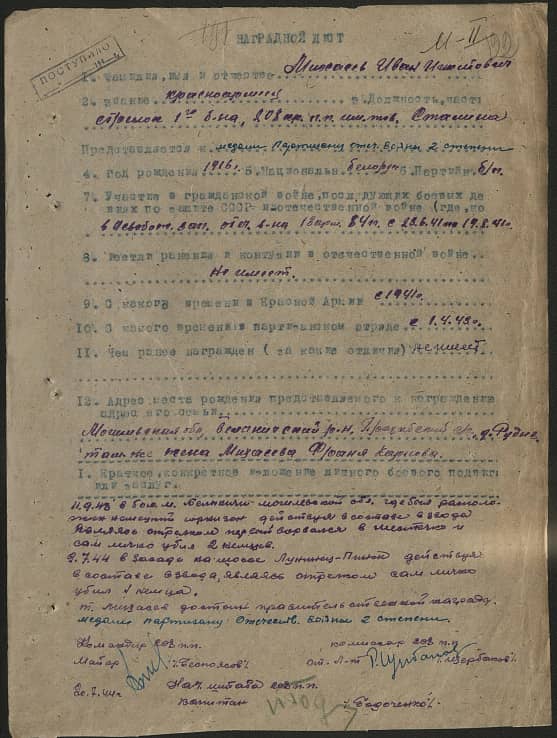 М-II
НАГРАДНОЙ ЛИСТ
ПОСТУПИЛО
1. Фамилия, имя и отчество Михасев Иван
2. Звание красноармеец 3. Должность, часть
стрелок 1го б-на, 208 пр. п.п. им. тов. Сталина
Представляется к медали Партизану Отеч. Войны 2 степени
4. Год рождения 1916г. 5. Национальн. белорус 6. Партийн. б/п.
7. Участие в гражданской войне, последующих боевых де
виях по защите СССР и отечественной войне (где, ко
в
8. Имеет ли ранения и контузии в отечественной войне
Не имеет.
9. С какого времени в Красной Армии с 1941г.
10. С какого времени в партизанском отряде с 1.4.43г.
11. Чем ранее награжден (за какие отличия) не имеет
12. Адрес места рождения представляемого к награждению
адрес его семьи.
Могилевская обл, Белыничский р-н,
там же жена Михасева Карповна
I. Краткое, конкретное изложение личного боевого подвига
или заслуг.
11.9.43 в бою м. Белыничи могилевской обл, где был располо-
жен немецкий гарнизон действуя в составе взвода
являясь стрелком первой ворвался в местечко и
сам лично убил 2 немцев.
2.7.44 в засаде на шоссе Лунинец-Пинск действуя
в составе взвода, являясь стрелком сам лично
убил 1 немца.
т. Михасев достоин правительственной награды.
медали партизану Отечеств. Войны 2 степени.
Командир 208 п.п. комиссар 208 п.п.
Майор ст. л-т /Щербаков/
20.7.44г. Нач. штаба 208 п.п.
капитан